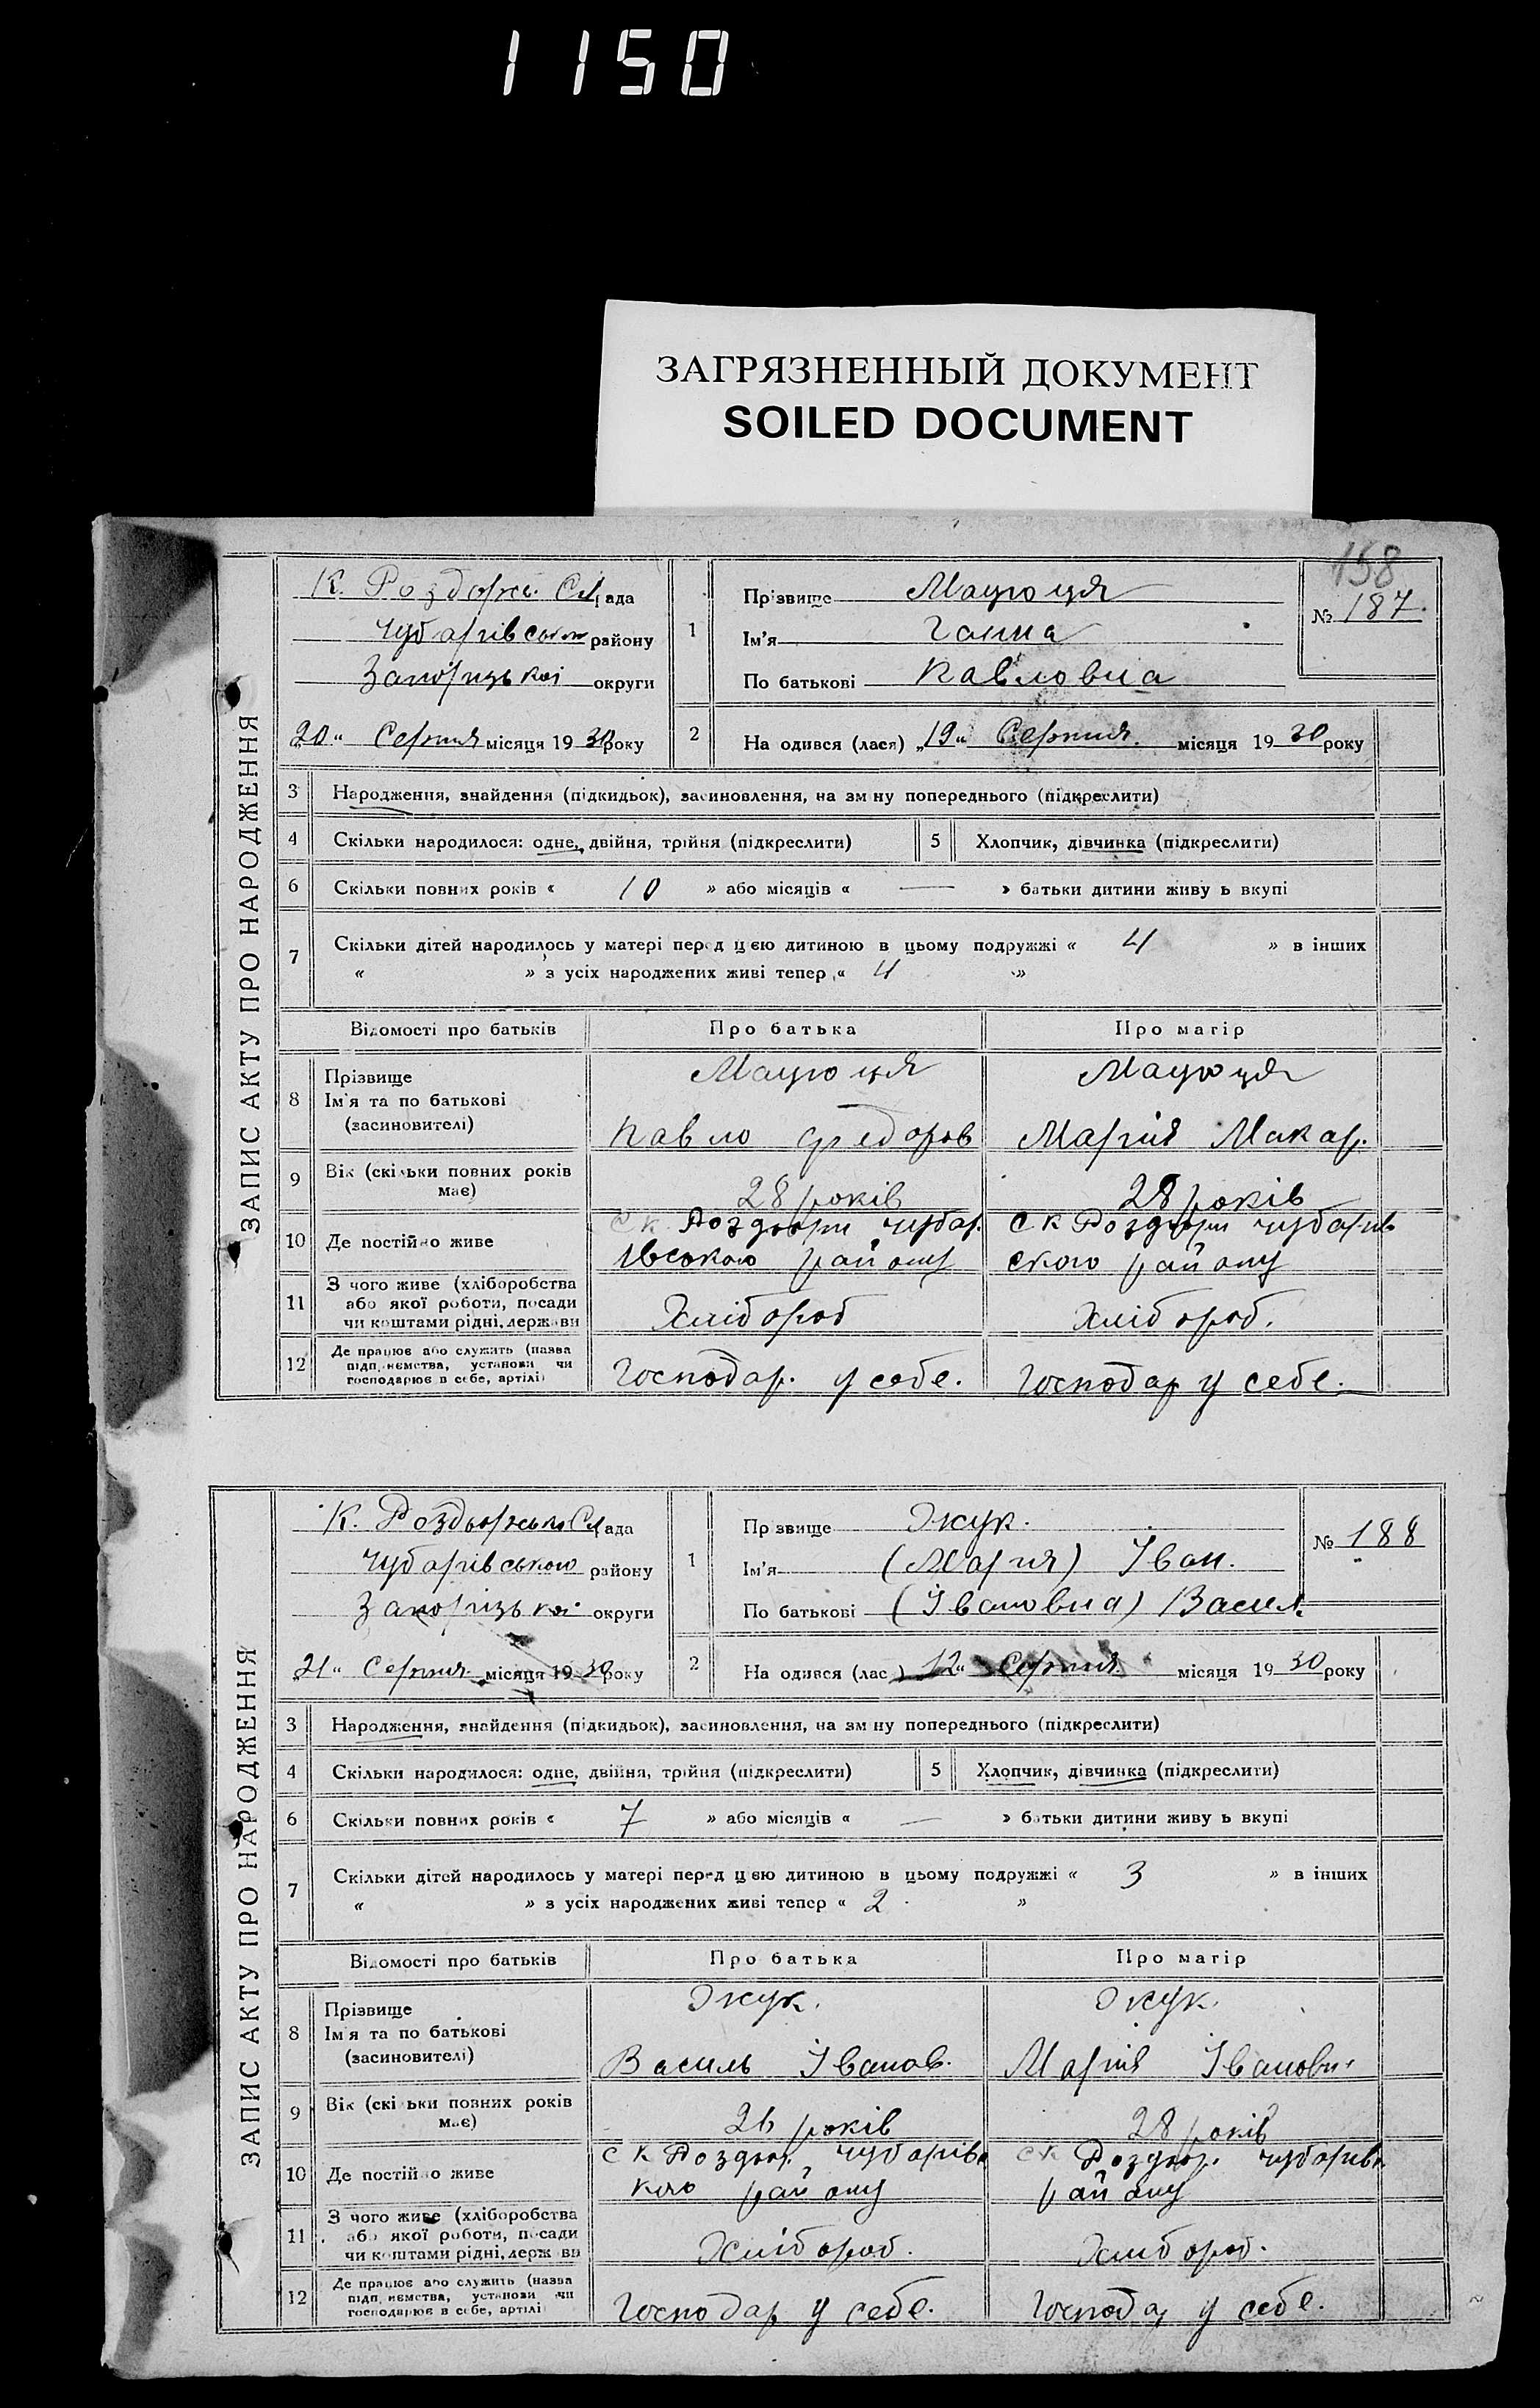 1150
ЗАГРЯЗНЕННЫЙ ДОКУМЕНТ
SOILED DOCUMENT
158
ЗАПИС АКТУ ПРО НАРОДЖЕННЯ
К. Роздорсь. С/рада
Чубарівського району
Запорізької округи
20 " Серпня місяця 1930 року
1
Прізвище Мацюця
Ім'я Ганна
По батькові Павловна
№ 187.
2 На одився (лася) „19" Серпня місяця 1930 року
3 Народження, знайдення (підкидьок), засиновлення, на зміну попереднього (підкреслити)
4 Скільки народилося: одне, двійня, трійня (підкреслити) 5 Хлопчик, дівчинка (підкреслити)
6 Скільки повних років « 10 » або місяців « — » батьки дитини живу ь вкупі
7 Скільки дітей народилось у матері перед цією дитиною в цьому подружжі « 4 » в інших
« » з усіх народжених живі тепер « 4 »
Відомості про батьків Про батька Про матір
8 Прізвище Ім'я та по батькові (засиновителі)
Мацюця Мацюця
Павло Федоров Марія Макар.
9 Вік (скільки повних років має) 28 років 28 років
10 Де постійно живе
С К Роздори Чубар. С К Роздори Чубарів
івського району ского району
11 З чого живе (хліборобства або якої роботи, посади чи коштами рідні, держави
Хлібороб Хлібороб.
12 Де працює або служить (назва підприємства, установи чи господарює в себе, артілі)
Господар. у себе. Господар у себе.
ЗАПИС АКТУ ПРО НАРОДЖЕННЯ
К. Роздорсько С/рада
Чубарівського району
Запорізької округи
21 " Серпня місяця 1930 року
1
Прізвище Жук.
Ім'я (Марія) Іван.
По батькові (Івановна) Васил.
№ 188
2 На одився (лас ) 12" Серпня місяця 1930 року
3 Народження, знайдення (підкидьок), засиновлення, на зміну попереднього (підкреслити)
4 Скільки народилося: одне, двійня, трійня (підкреслити) 5 Хлопчик, дівчинка (підкреслити)
6 Скільки повних років « 7 » або місяців « — » батьки дитини живу ь вкупі
7 Скільки дітей народилось у матері перед цією дитиною в цьому подружжі « 3 » в інших
« » з усіх народжених живі тепер « 2 »
Відомості про батьків Про батька Про матір
8 Прізвище Ім'я та по батькові (засиновителі)
Жук. Жук.
Василь Іванов. Марія Іванови.
9 Вік (скільки повних років має) 26 років 28 років
10 Де постійно живе
С К Роздор. Чубарівс С К Роздор. Чубарівс.
кого району району
11 З чого живе (хліборобства або якої роботи, посади чи коштами рідні, держави
Хлібороб. Хлібороб.
12 Де працює або служить (назва підприємства, установи чи господарює в себе, артілі
Господар у себе. Господар у себе.